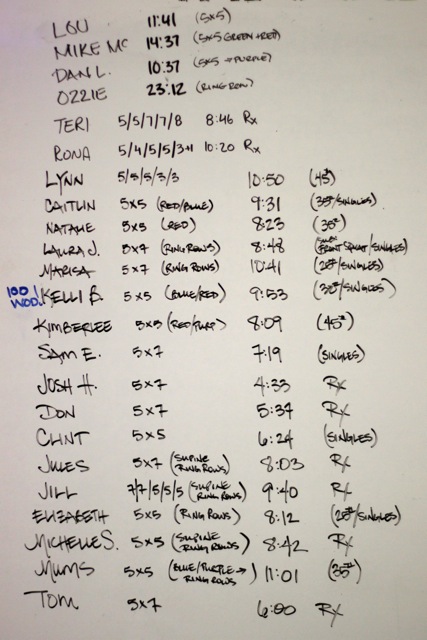 LOU 11:41 (5x5)
MIKE MC 14:37 (5x5 GREEN+RED)
DAN L. 10:37 (5x5 → PURPLE)
OZZIE 23:12 (RING ROW)
TERI 5/5/7/7/8 8:46 Rx
RONA 5/4/5/5/3+1 10:20 Rx
LYNN 5/5/5/3/3 10:50 (45#)
CAITLIN 5x5 (RED/BLUE) 9:31 (35#/SINGLES)
NATALIE 5x5 (RED) 8:23 (35#)
LAURA J. 5x7 (RING ROWS) 8:48 FRONT SQUAT/SINGLES)
MARISA 5x7 (RING ROWS) 10:41 (25#/SINGLES)
100 WOD! KELLI B. 5x5 (BLUE/RED) 9:53 (35#/SINGLES)
KIMBERLEE 5x5 (RED/PURP) 8:09 (45#)
SAM E. 5x7 7:19 (SINGLES)
JOSH H. 5x7 4:33 Rx
DON 5x7 5:37 Rx
CLINT 5x5 6:24 (SINGLES)
JULES 5x7 (SUPINE RING ROWS) 8:03 Rx
JILL 7/7/5/5/5 (SUPINE RING ROWS) 9:40 Rx
ELIZABETH 5x5 (RING ROWS) 8:12 (25#/SINGLES)
MICHELLE S. 5x5 (SUPINE RING ROWS) 8:42 Rx
MUMS 5x5 (BLUE/PURPLE → RING ROWS) 11:01 (35#)
TOM 5x7 6:00 Rx